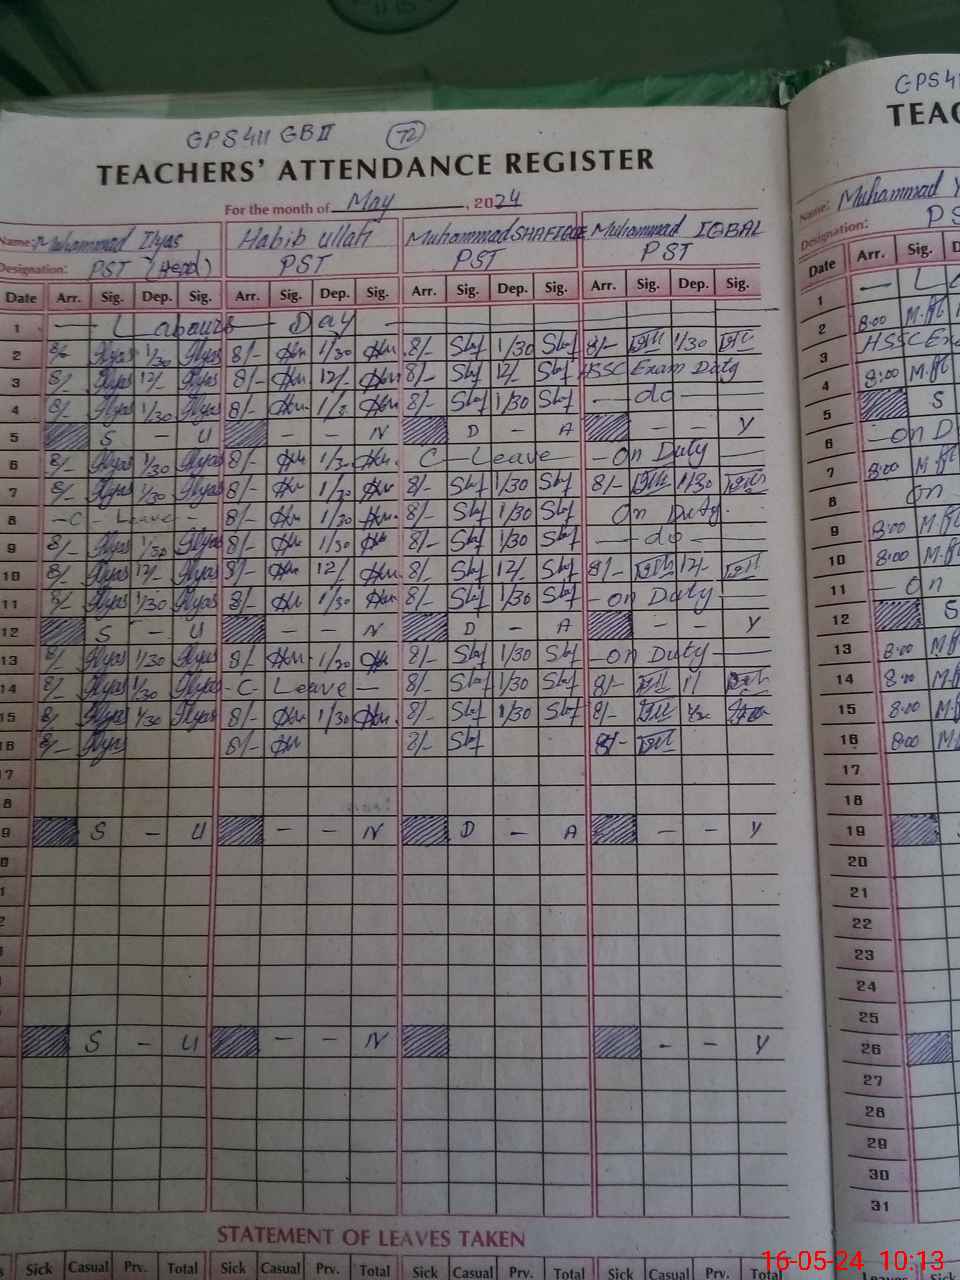 GPS 411 GB II (72)
TEACHERS' ATTENDANCE REGISTER
For the month of May, 2024
Name: Muhammad Ilyas Habib ullah Muhammad SHAFIQUE Muhammad IQBAL
Designation: PST (Head) PST PST PST
Date Arr. Sig. Dep. Sig. Arr. Sig. Dep. Sig. Arr. Sig. Dep. Sig. Arr. Sig. Dep. Sig.
1 — Labours — Day —
2 8/- Ilyas 1/30 Ilyas 8/- 1/30 8/- Sbf 1/30 Sbf 8/- 1/30
3 8/- Ilyas 12/- Ilyas 8/- 12/- 8/- Sbf 12/- Sbf HSSC Exam Duty
4 8/- Ilyas 1/30 Ilyas 8/- 8/- Sbf 1/30 Sbf — do —
5 S — U — — N D — A — — Y
6 8/- Ilyas 1/30 Ilyas 8/- C — Leave — — On Duty —
7 8/- Ilyas 1/30 Ilyas 8/- 1/30 8/- Sbf 1/30 Sbf 8/- 1/30
8 — C - Leave - 8/- 1/30 8/- Sbf 1/30 Sbf On Duty.
9 8/- Ilyas 1/30 Ilyas 8/- 1/30 8/- Sbf 1/30 Sbf — do —
10 8/- Ilyas 12/- Ilyas 8/- 12/ 8/- Sbf 12/- Sbf 8/- 12/-
11 8/- Ilyas 1/30 Ilyas 8/- 1/30 8/- Sbf 1/30 Sbf - on Duty —
12 S — U — — N D — A — — Y
13 8/- Ilyas 1/30 Ilyas 8/- 8/- Sbf 1/30 Sbf — on Duty —
14 8/- Ilyas 1/30 Ilyas - C - Leave — 8/- Sbf 1/30 Sbf 8/-
15 8/- Ilyas 1/30 Ilyas 8/- 1/30 8/- Sbf 1/30 Sbf 8/-
16 8/- Ilyas 8/- 8/- Sbf 8/-
17
8
9 S — U — — N D — A — — Y
0
1
2
S — U — — N — — Y
STATEMENT OF LEAVES TAKEN
Sick Casual Prv. Total Sick Casual Prv. Total Sick Casual Prv. Total Sick Casual
GPS 41
TEAC
Name: Muhammad Y
Designation: PS
Date Arr. Sig. D
1 —
2 8:00 M.
3 HSSC Exa
4 8:00 M.
5 S
6 — on D
7 8:00 M.
8 on
9 8:00 M.
10 8:00 M.
11 — on
12 S
13 8:00 M.
14 8:00 M.
15 8:00 M.
16 8:00 M.
17
18
19 S
20
21
22
23
24
25
26
27
28
29
30
31
16-05-24 10:13